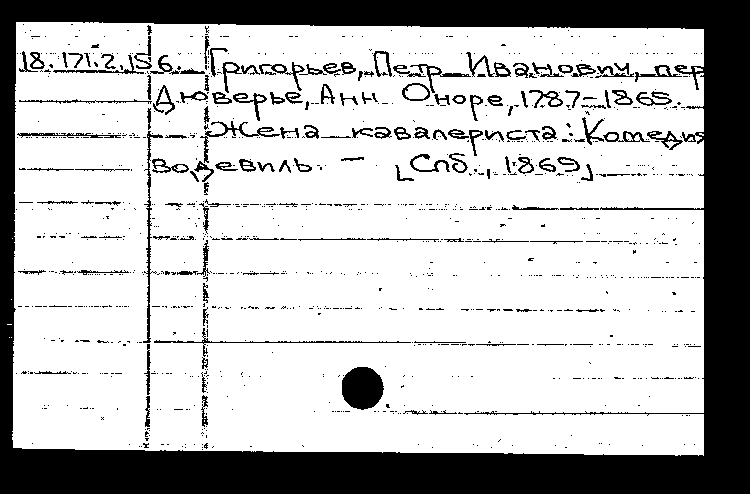 18.171.2.156. Григорьев, Петр Иванович, пер
Дюверье, Анн Оноре, 1787-1865.
Жена кавалериста: Комедия
водевиль. — [Спб., 1869]